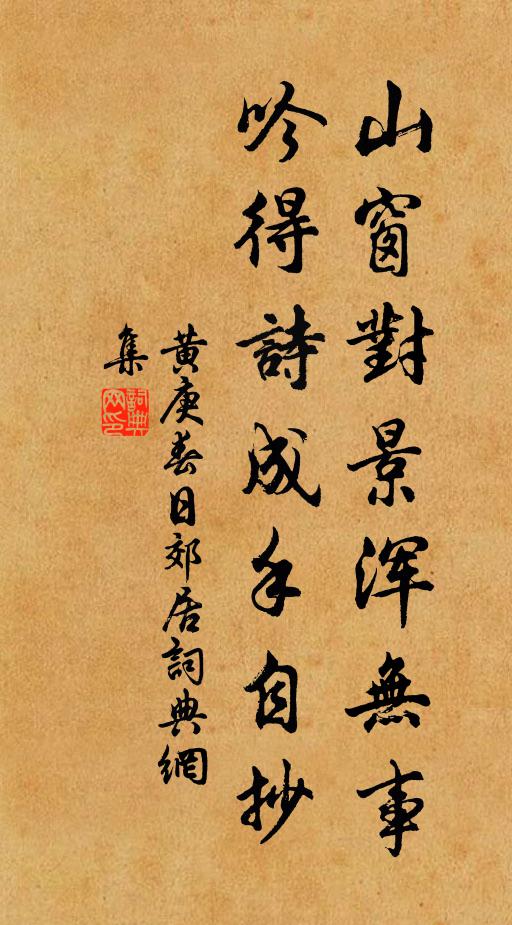 山窗對景渾無事
吟得詩成手自抄
黃庚春日郊居詞典網
集
詞典
网印